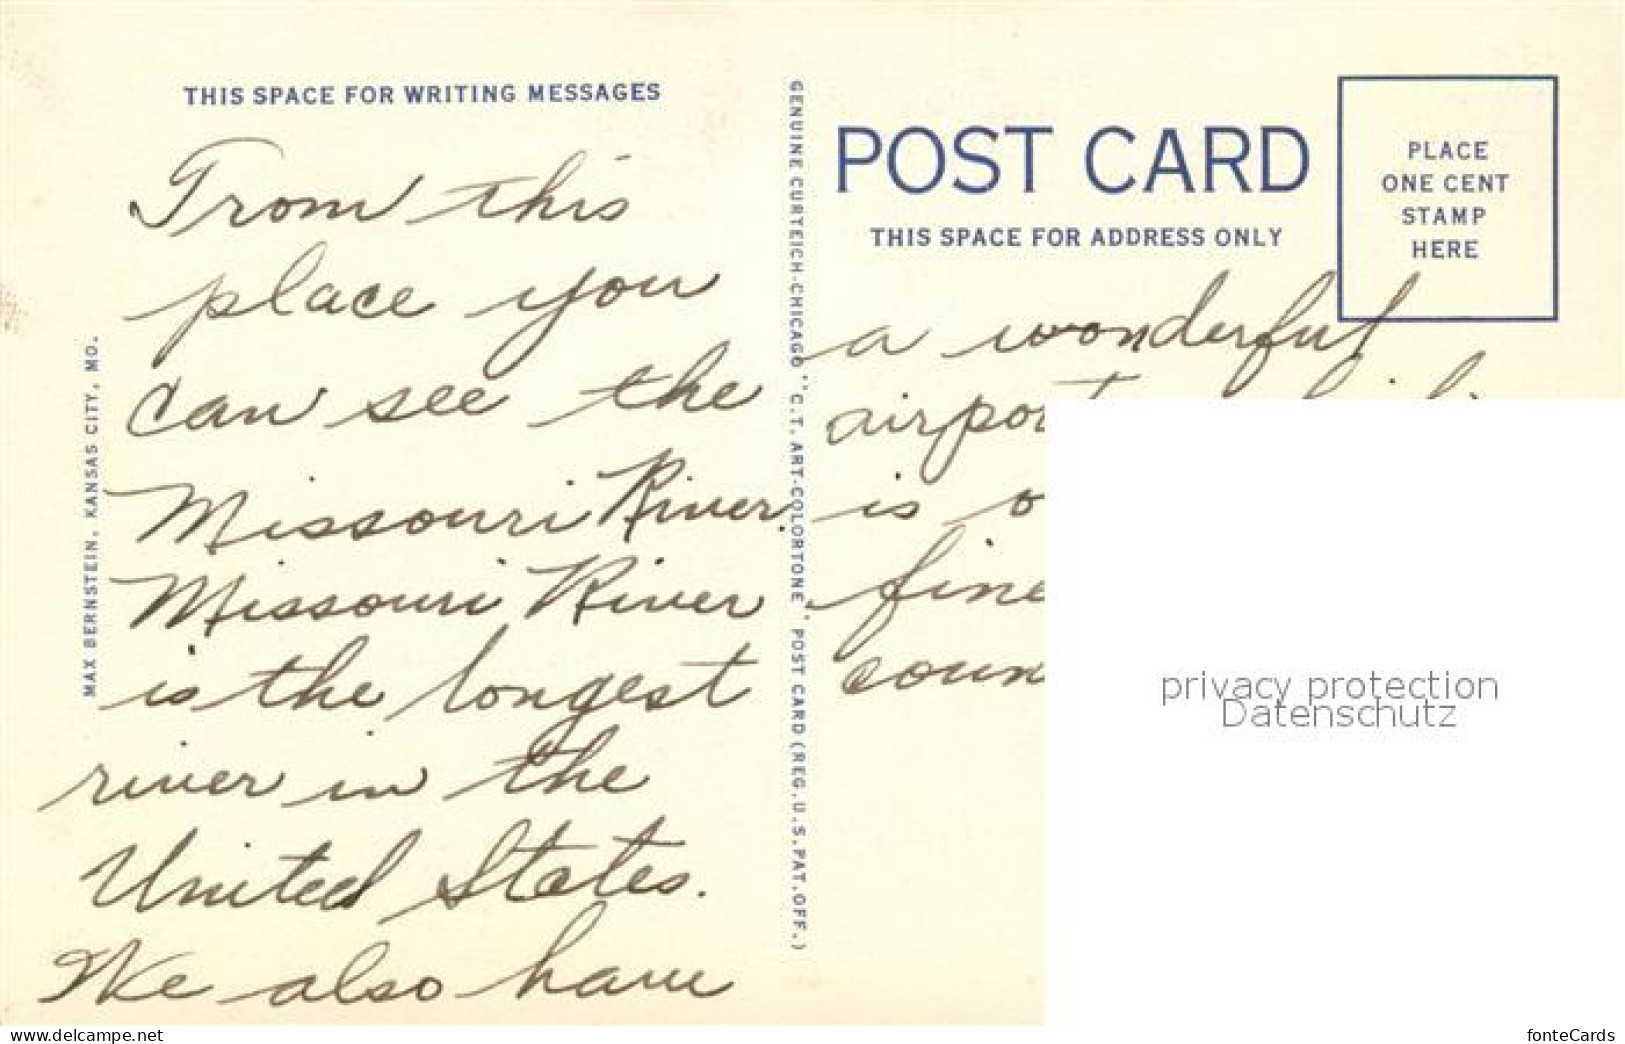 THIS SPACE FOR WRITING MESSAGES
From this
place you
can see the
Missouri River.
Missouri River
is the longest
river in the
United States.
We also have
MAX BERNSTEIN, KANSAS CITY, MO.
GENUINE CURTEICH-CHICAGO "C.T. ART-COLORTONE" POST CARD (REG. U.S. PAT. OFF.)
POST CARD
THIS SPACE FOR ADDRESS ONLY
PLACE
ONE CENT
STAMP
HERE
a wonderful
is
privacy protection
Datenschutz
www.delcampe.net
fonteCards